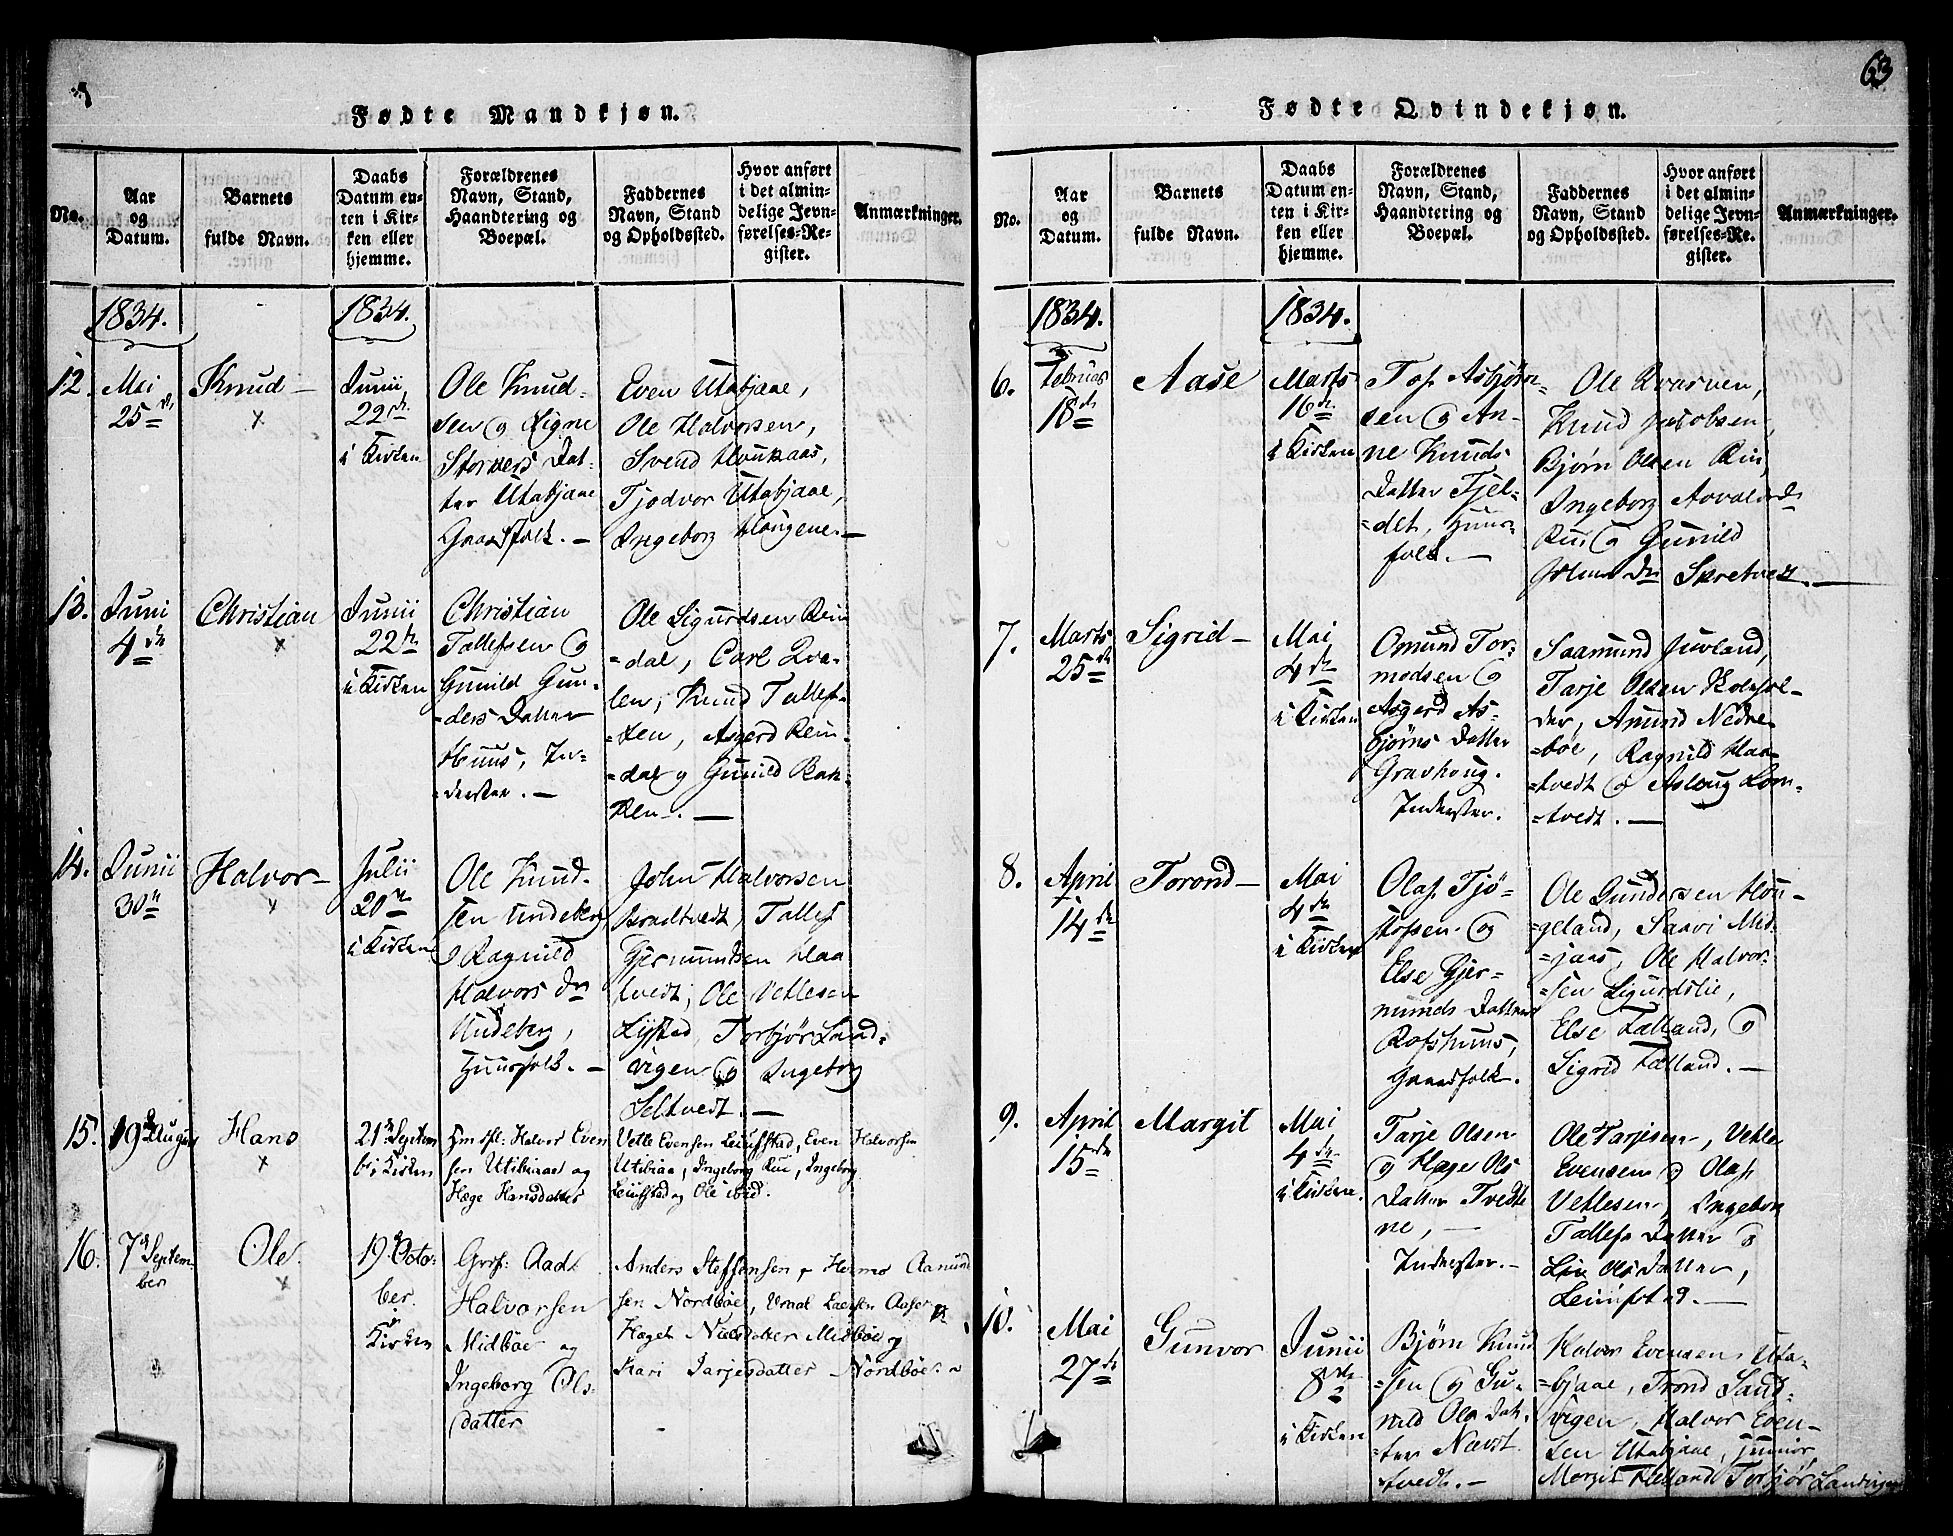 Fødte Mandkjøn.
No.
Aar
og
Datum.
Barnets
fulde Navn.
Daabs
Datum en-
ten i Kir-
ken eller
hjemme.
Forældrenes
Navn, Stand,
Haandtering og
Boepæl.
Faddernes
Navn, Stand
og Opholdssted.
Hvor anført
i det almin-
delige Jevn-
førelses-Re-
gister.
Anmærkninger.
1834.
1834.
12.
Mai
25
Knud
Junii
22
i Kirken
Ole Knud-
sen og Signe
Dat-
ter Utabjaae
Gaardfolk.
Even Utabjaae,
Ole Halvorsen,
Svend Houkaas,
Tjodvor Utabjaae,
Ingeborg Haugene.
13.
Juni
4
Christian
Junii
22
i Kirken
Christian
Tallefsen og
Gunild Gun-
ders Datter
Huus, In-
derster.
Ole Sigurdsen Rein
=dal, Carl Qva-
len, Knud Tallef-
=sen, Asgerd Rein-
=dal og Gunild Bak-
ken.
14.
Junii
30
Halvor
Julii
20
i Kirken
Ole Knud-
sen Lindeberg
og Ragnild
Halvors
Huusfolk.
John Halvorsen
Tallef
Gjermundsen Haa
tvedt, Ole Vetlesen
Torbjør Sand-
vigen og Ingeborg
Seltvedt.
15.
19 August
Hans
21 Septem
b. i Kirken
Halvor Even
sen Utibiaae og
Hæge Hansdatter
Vetle Evensen Leiufstad, Even Halvorsen
Utibiaae, Ingeborg Rui, Ingeborg
Leiufstad og Ole ibid.
16.
7 Septem-
ber
Ole
19 Octo-
ber.
i
Kirken
Halvorsen
Midbøe og
Ingeborg Ols-
datter
Anders Steffensen, Hermo Aamund
sen Nordbøe,
Hæget Nielsdatter Midbøe og
Kari Tarjesdatter Nordbøe
63
Fødte Qvindekjøn.
No.
Aar
og
Datum.
Barnets
fulde Navn.
Daabs
Datum en-
ten i Kir-
ken eller
hjemme.
Forældrenes
Navn, Stand,
Haandtering og
Boepæl.
Faddernes
Navn, Stand
og Opholdssted.
Hvor anført
i det almin-
delige Jevn-
førelses-Re-
gister.
Anmærkninger.
1834.
1834.
6.
Februar
18
Aase
Marts
16
i Kirken
Asbjørn-
sen og An-
ne Knuds-
Datter Fjel-
=det, Huus-
folk.
Ole Kvarven,
Knud Jacobsen,
Bjørn Olsen Rui,
Ingeborg
Rui og Gunild
Skretvedt.
7.
Marts
25
Sigrid
Mai
4
i Kirken
Omund Tor-
modsen og
Asgerd As-
bjørns Datter
Gravhoug.
Inderster.
Saamund Juvland,
Tarje Olsen
Amund Nedre-
bøe, Ragnild Haa-
=tvedt og Asloug Lom-
=tvedt.
8.
April
14
Torond
Mai
4
i Kirken
Olaf Tjø-
stofsen og
Else Gjer-
munds Datter
Rofshuus,
Gaardfolk.
Ole Gundersen Hou-
=geland, Saavi Mid-
=jaas, Ole Halvor-
=sen Sigurdslie,
Else Fælland, og
Sigrid Fælland.
9.
April
15
Margit
Mai
4
i Kirken
Tarje Olsen
og Hæge Ols
Datter Tvedte
ne,
Inderster.
Ole Tarjesen, Vetle
Evensen og Olaf
Vetlesen, Ingeborg
Tallefs Datter og
Liv Ols Datter,
Leiufstad.
10.
Mai
27
Gunvor
Junii
8
i Kirken
Bjørn Knud
=sen og Gu-
nild Ols Dat-
=ter
tvedt.
Halvor Evensen Uta-
=bjaae, Trond Sand-
vigen, Halvor Even-
sen Utabjaae, junior,
Margit Helland, Torbjør Sandvigen